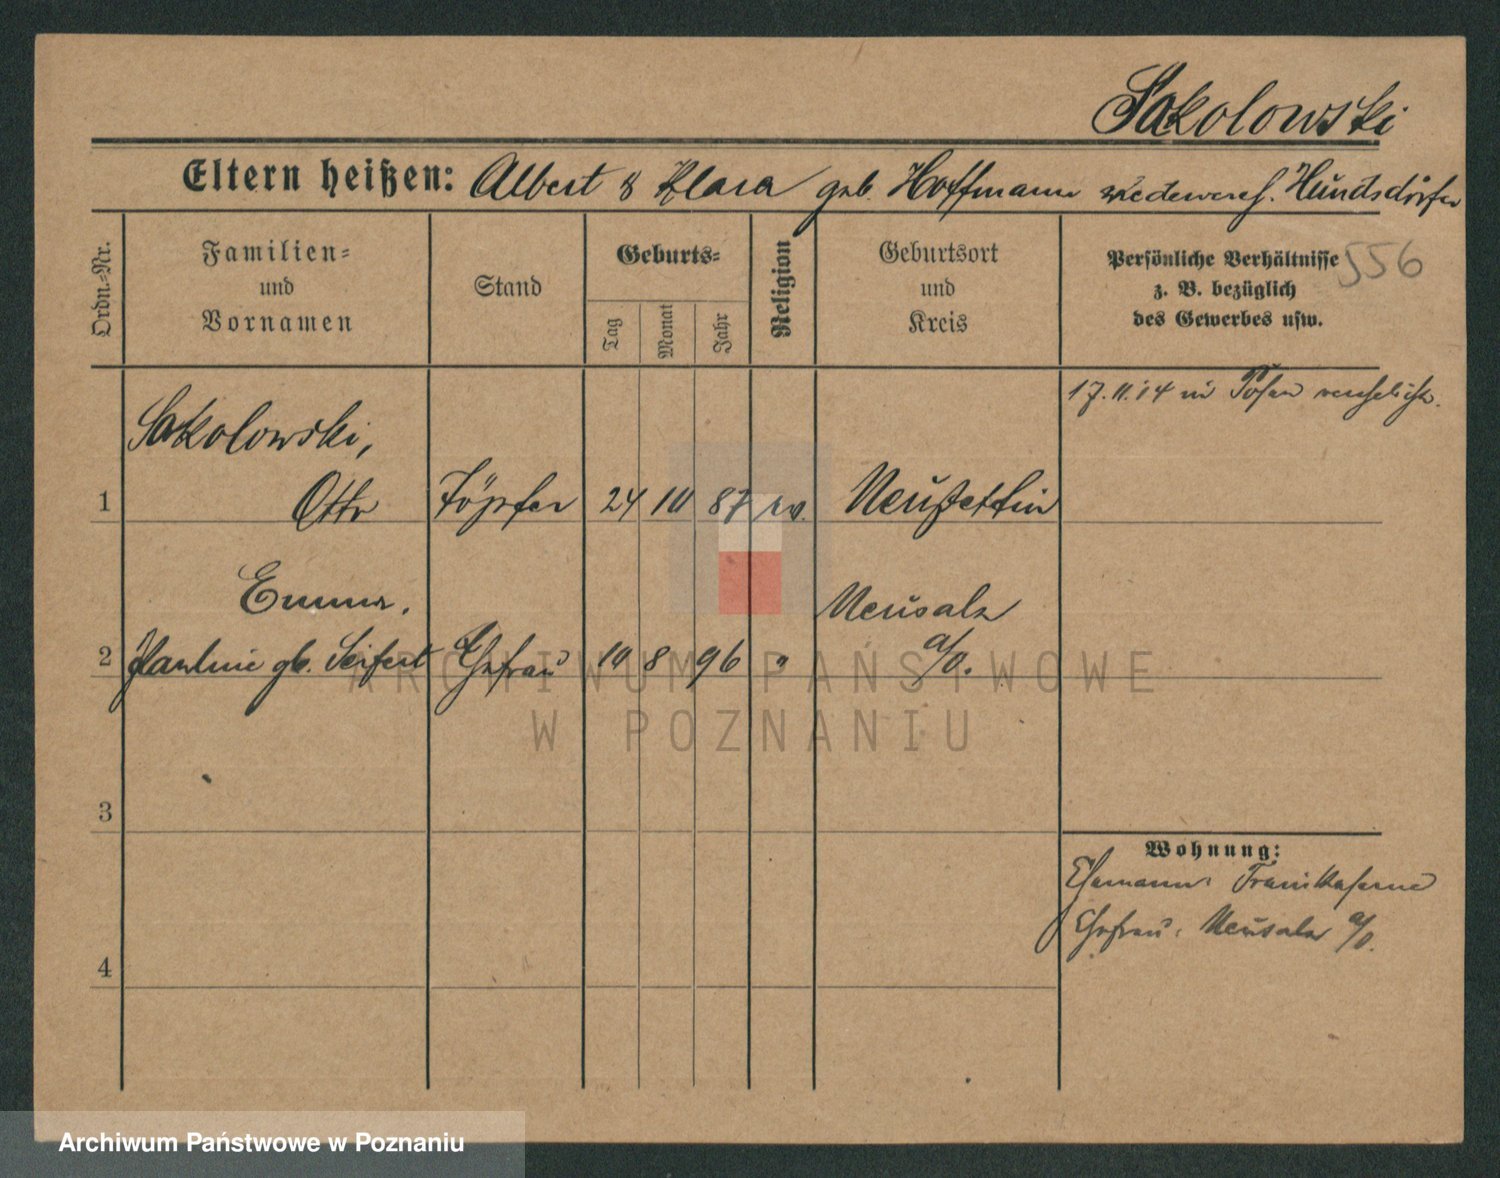 Sakolowski
Eltern heißen: Albert & Klara geb. Hoffmann wiederverh. Hundsdörfer
Ordn.-Nr.
Familien-
und
Vornamen
Stand
Geburts-
Tag
Monat
Jahr
Religion
Geburtsort
und
Kreis
Persönliche Verhältnisse
z. B. bezüglich
des Gewerbes usw.
556
17.11.14 in Posen verehelicht.
Sakolowski,
1 Otto Töpfer 24 10 87 ev. Neustettin
Emma,
Neusalz
2 Pauline gb. Seifert Ehefrau 10 8 96 " a/O.
3
Wohnung:
Ehemann: Trainkaserne
Ehefrau: Neusalz a/O.
4
ARCHIWUM PAŃSTWOWE
W POZNANIU
Archiwum Państwowe w Poznaniu